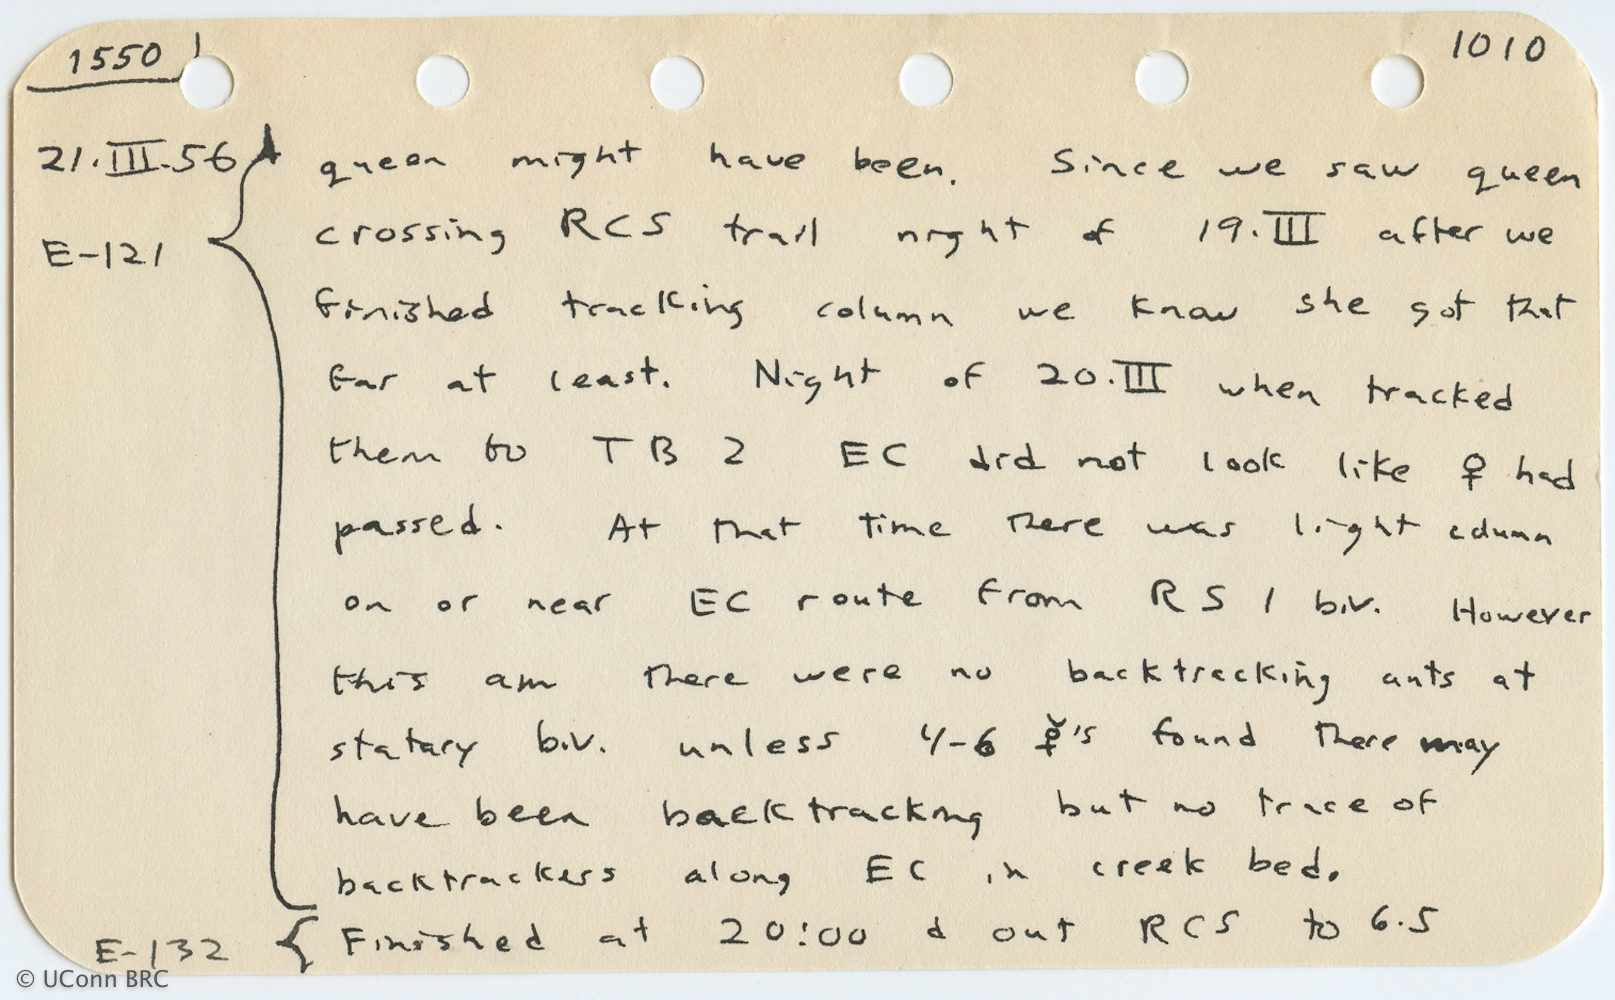 1550 1010
21.III.56 queen might have been. Since we saw queen
E-121 crossing RCS trail night of 19.III after we
finished tracking column we know she got that
far at least. Night of 20.III when tracked
them to TB 2 EC did not look like ♀ had
passed. At that time there was light column
on or near EC route from RS 1 biv. However
this am there were no backtracking ants at
statary biv. unless 4-6 ☿'s found there may
have been backtracking but no trace of
backtrackers along EC in creek bed.
E-132 Finished at 20:00 & out RCS to 6.5
© UConn BRC